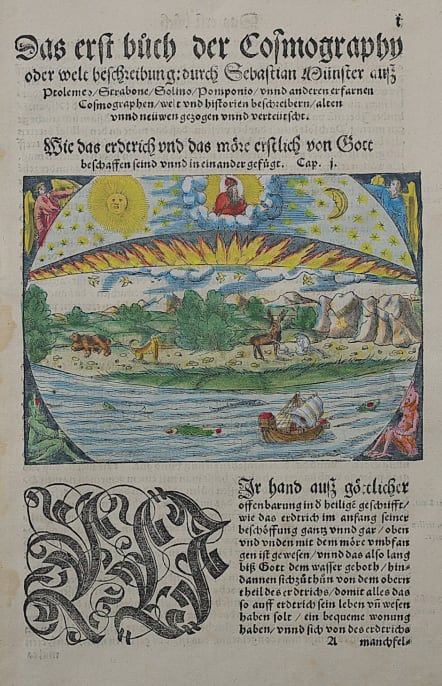 i
Das erst buͤch der Cosmography
oder welt beschreibung: durch Sebastian Münster auß
Ptolemeo/ Strabone/ Solino/ Pomponio/ vnnd anderen erfarnen
Cosmographen/ welt vnd historien beschreibern/ alten
vnnd neüwen gezogen vnnd verteütscht.
Wie das erdtrich vnd das moͤre erstlich von Gott
beschaffen seind vnnd in einander gefuͤgt. Cap. j.
WIr hand auß goͤttlicher
offenbarung in d heilige geschrifft/
wie das erdtrich im anfang seiner
beschoͤffung gantz vnnd gar / oben
vnd vnden mit dem moͤre vmbfan
gen ist gewesen/ vnnd das also lang
biß Gott dem wasser geboth/ hin-
dannen sich zuͤthuͤn von dem obern
theil des erdtrichs/ domit alles das
so auff erdtrich sein leben vñ wesen
haben solt / ein bequeme wonung
haben/ vnnd sich von des erdtrichs
A manchfel-